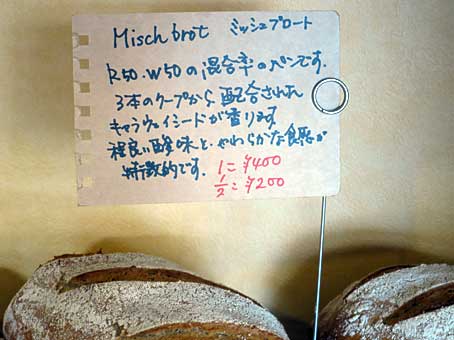 Mischbrot ミッシュブロート
R50.W50の混合率のパンです.
3本のクープから配合された
キャラウェイシードが香ります
程良い酸味と、やわらかな食感が
特徴的です. 1コ¥400
1/2コ¥200